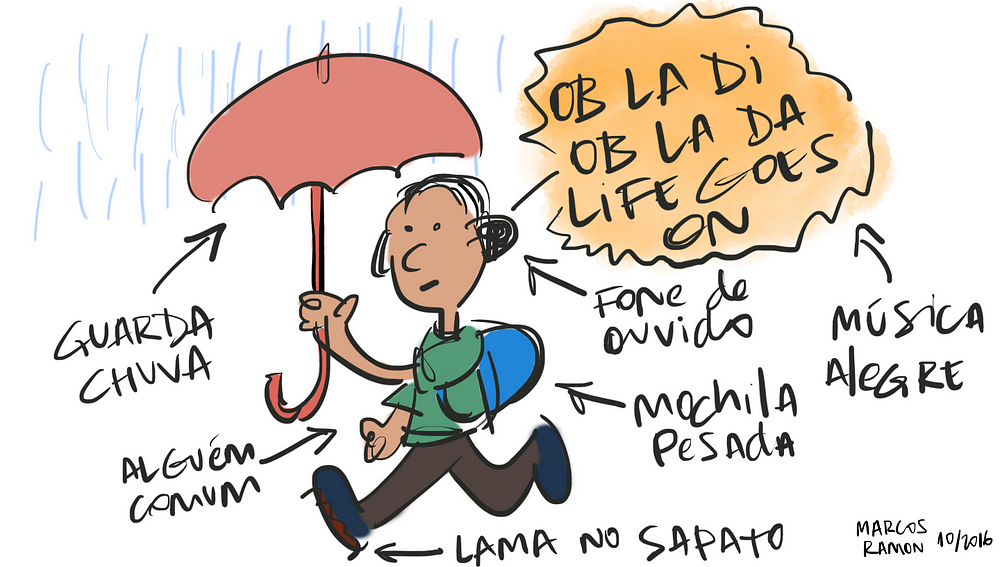 OB LA Di
OB LA DA
LiFE GOES
ON
GUARDA
CHUVA
FONE de
OUVIDO
MÚSiCA
AleGRE
MOCHiLA
PeSADA
ALGUÉM
COMUM
LAMA NO SAPATO
MARCOS
RAMON 10/2016